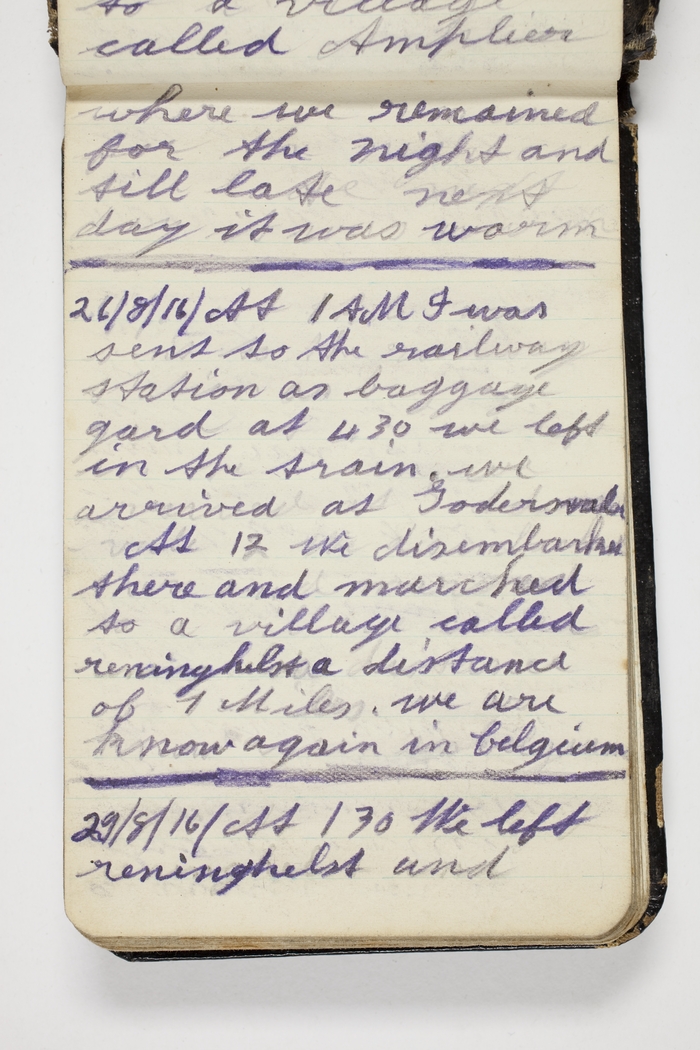 to a village
called Amplier
where we remained
for the night and
till late next
day it was warm
26/8/16/ At 1 AM I was
sent to the railway
station as baggage
gard at 430 we left
in the train. we
arrived at
At 12 We disembarked
there and marched
to a village called
reninghelst a distance
of 7 Miles. we are
know again in belgium
29/8/16/ At 130 We left
reninghelst and